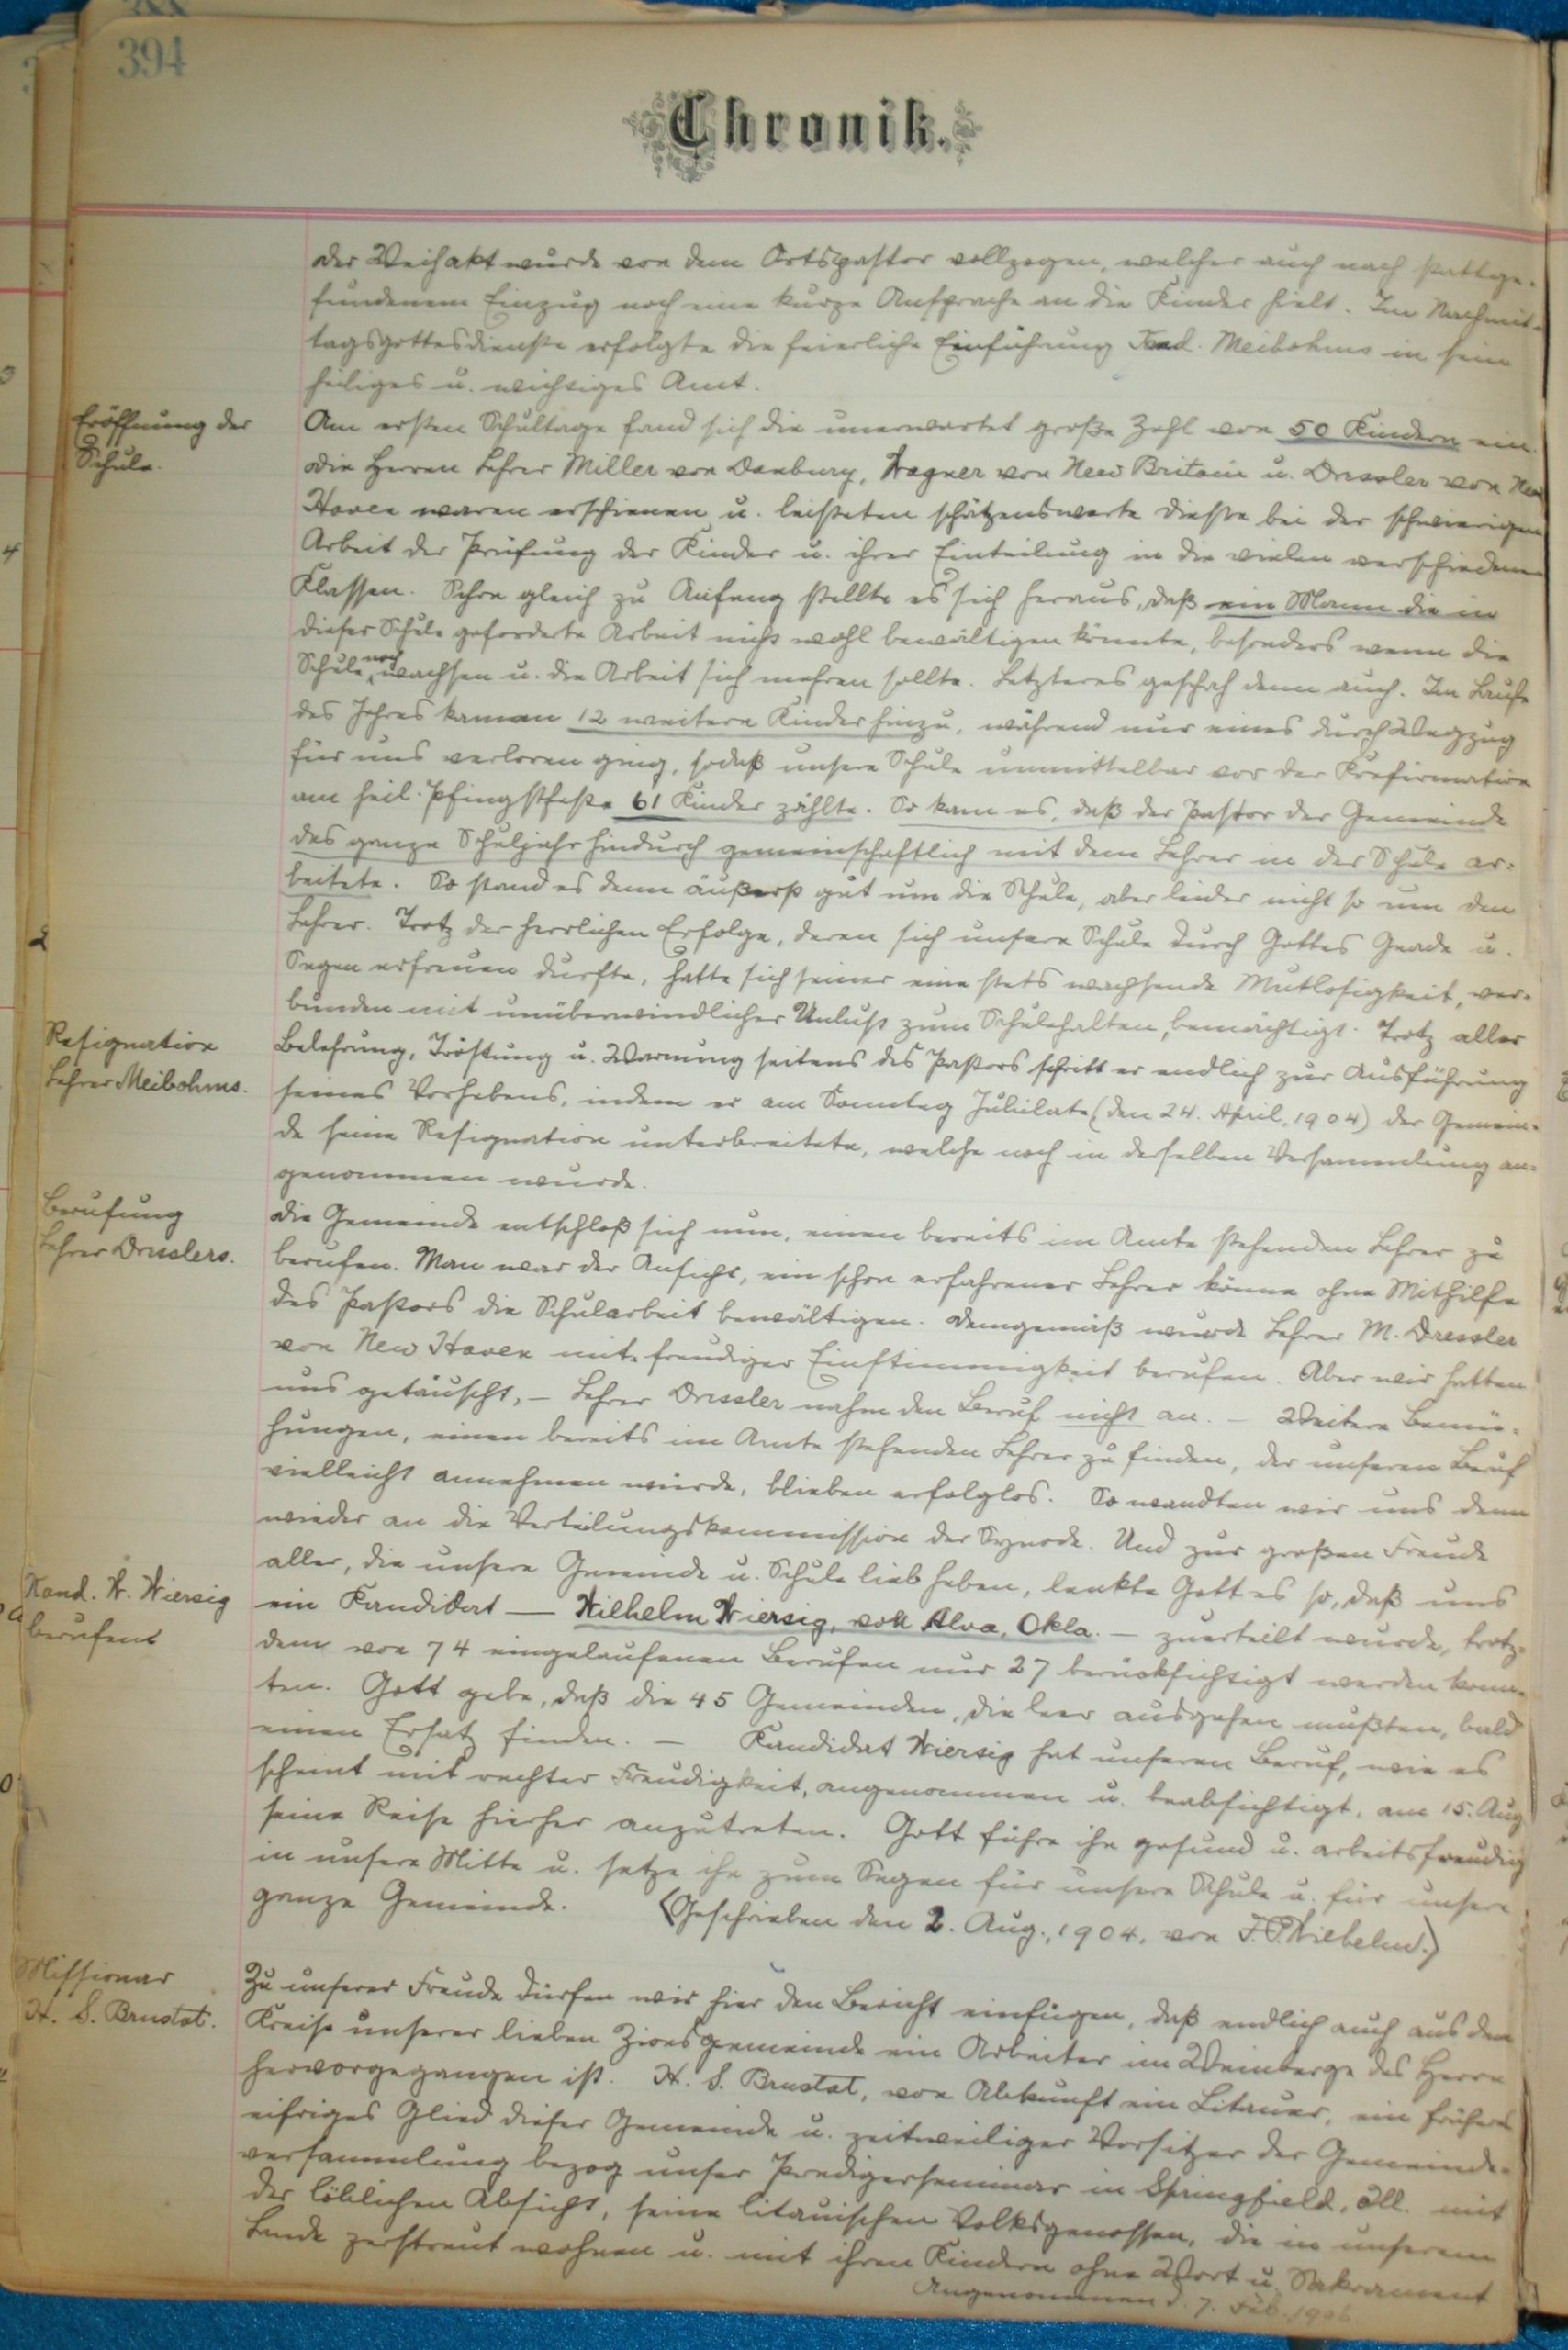 394
Chronik.
der Weihakt wurde von dem Ortspastor vollzogen, welcher auch nach stattge-
fundenem Einzug noch eine kurze Ansprache an die Kinder hielt. Im Nachmit-
tagsgottesdienste erfolgte die feierliche Einführung Kand. Meibohms in sein
heiliges u. wichtiges Amt.
Eröffnung der
Schule.
Am ersten Schultage fand sich die unerwartet große Zahl von 50 Kindern ein.
Die Herren Lehrer Miller von Danbury, Wagner von New Britain u. Dressler von New
Haven waren erschienen u. leisteten schätzenswerte Dienste bei der schwierigen
Arbeit der Prüfung der Kinder u. ihrer Einteilung in die vielen verschiedenen
Klassen. Schon gleich zu Anfang stellte es sich heraus, daß ein Mann die in
dieser Schule geforderte Arbeit nicht wohl bewältigen könnte, besonders wenn die
Schule noch wachsen u. die Arbeit sich mehren sollte. Letzteres geschah denn auch. Im Laufe
des Jahres kamen 12 weitere Kinder hinzu, während nur eines durch Wegzug
für uns verloren ging, sodaß unsere Schule unmittelbar vor der Konfirmation
am heil. Pfingstfeste 61 Kinder zählte. So kam es, daß der Pastor der Gemeinde
das ganze Schuljahr hindurch gemeinschaftlich mit dem Lehrer in der Schule ar-
beitete. So stand es denn äußerst gut um die Schule, aber leider nicht so um den
Lehrer. Trotz der herrlichen Erfolge, deren sich unsere Schule durch Gottes Gnade u.
Segen erfreuen durfte, hatte sich seiner eine stets wachsende Mutlosigkeit, ver-
bunden mit unüberwindlicher Unlust zum Schulehalten, bemächtigt. Trotz aller
Resignation
Lehrer Meibohms.
Belehrung, Tröstung u. Warnung seitens des Pastors schritt er endlich zur Ausführung
seines Vorhabens, indem er am Sonntag Jubilate (den 24. April, 1904) der Gemein-
de seine Resignation unterbreitete, welche noch in derselben Versammlung an-
genommen wurde.
Berufung
Lehrer Dresslers.
Die Gemeinde entschloß sich nun, einen bereits im Amte stehenden Lehrer zu
berufen. Man war der Ansicht, ein schon erfahrener Lehrer könne ohne Mithilfe
des Pastors die Schularbeit bewältigen. Demgemäß wurde Lehrer M. Dressler
von New Haven mit freudiger Einstimmigkeit berufen. Aber wir hatten
uns getäuscht, – Lehrer Dressler nahm den Beruf nicht an. – Weitere Bemü-
hungen, einen bereits im Amte stehenden Lehrer zu finden, der unseren Beruf
vielleicht annehmen würde, blieben erfolglos. So wandten wir uns denn
wieder an die Verteilungskommission der Synode. Und zur großen Freude
aller, die unsere Gemeinde u. Schule lieb haben, lenkte Gott es so, daß uns
Kand. W. Wiersig
berufen
ein Kandidat – Wilhelm Wiersig, von Alva, Okla. – zuerteilt wurde, trotz-
dem von 74 eingelaufenen Berufen nur 27 berücksichtigt werden konn-
ten. Gott gebe, daß die 45 Gemeinden, die leer ausgehen mußten, bald
einen Ersatz finden. – Kandidat Wiersig hat unseren Beruf, wie es
scheint mit rechter Freudigkeit, angenommen u. beabsichtigt, am 15. Aug
seine Reise hierher anzutreten. Gott führe ihn gesund u. arbeitsfreudig
in unsere Mitte u. setze ihn zum Segen für unsere Schule u. für unsere
ganze Gemeinde. (Geschrieben den 2. Aug., 1904, von
Missionar
H. S. Brustat.
Zu unserer Freude dürfen wir hier den Bericht einfügen, daß endlich auch aus dem
Kreise unserer lieben Zionsgemeinde ein Arbeiter im Weinberge des Herrn
hervorgegangen ist. H. S. Brustat, von Abkunft ein Litauer, ein früheres
eifriges Glied dieser Gemeinde u. zeitweiliger Vorsitzer der Gemeinde-
versammlung bezog unser Predigerseminar in Springfield, Ill. mit
der löblichen Absicht, seine litauischen Volksgenossen, die in unserem
Lande zerstreut wohnen u. mit ihren Kindern ohne Wort u. Sakrament
Angenommen d. 7. Feb. 1906